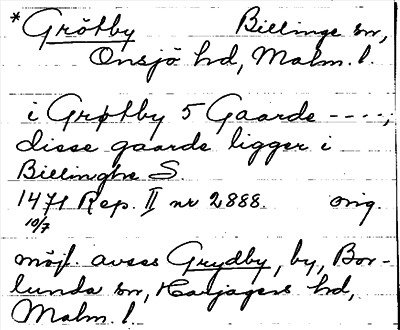 *Grötby Billinge sn,
Onsjö hd, Malm. l.
i Grøtby 5 Gaarde ----,
disse gaarde ligger i
Billinghe S.
1471 Rep. II nr 2888. orig.
10/7
möjl. avses Grydby, by, Bor-
lunda sn, Harjagers hd,
Malm. l.